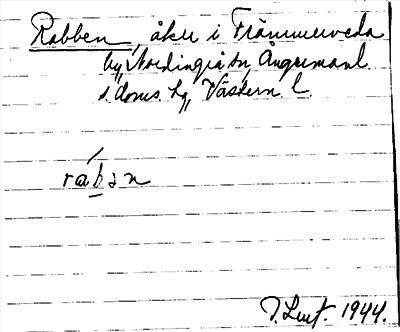 Rabben, åker i Främmerveda
by, Nordingrå sn, Ångermanl.
s. doms. hg, Västern. l.
rábən
1944.